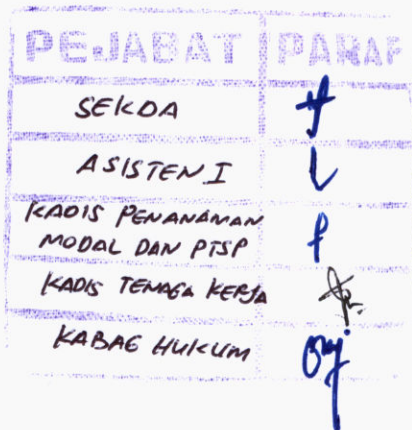 PEJABAT PARAF
SEKDA
ASISTEN I
KADIS PENANAMAN
MODAL DAN PTSP
KADIS TENAGA KERJA
KABAG HUKUM